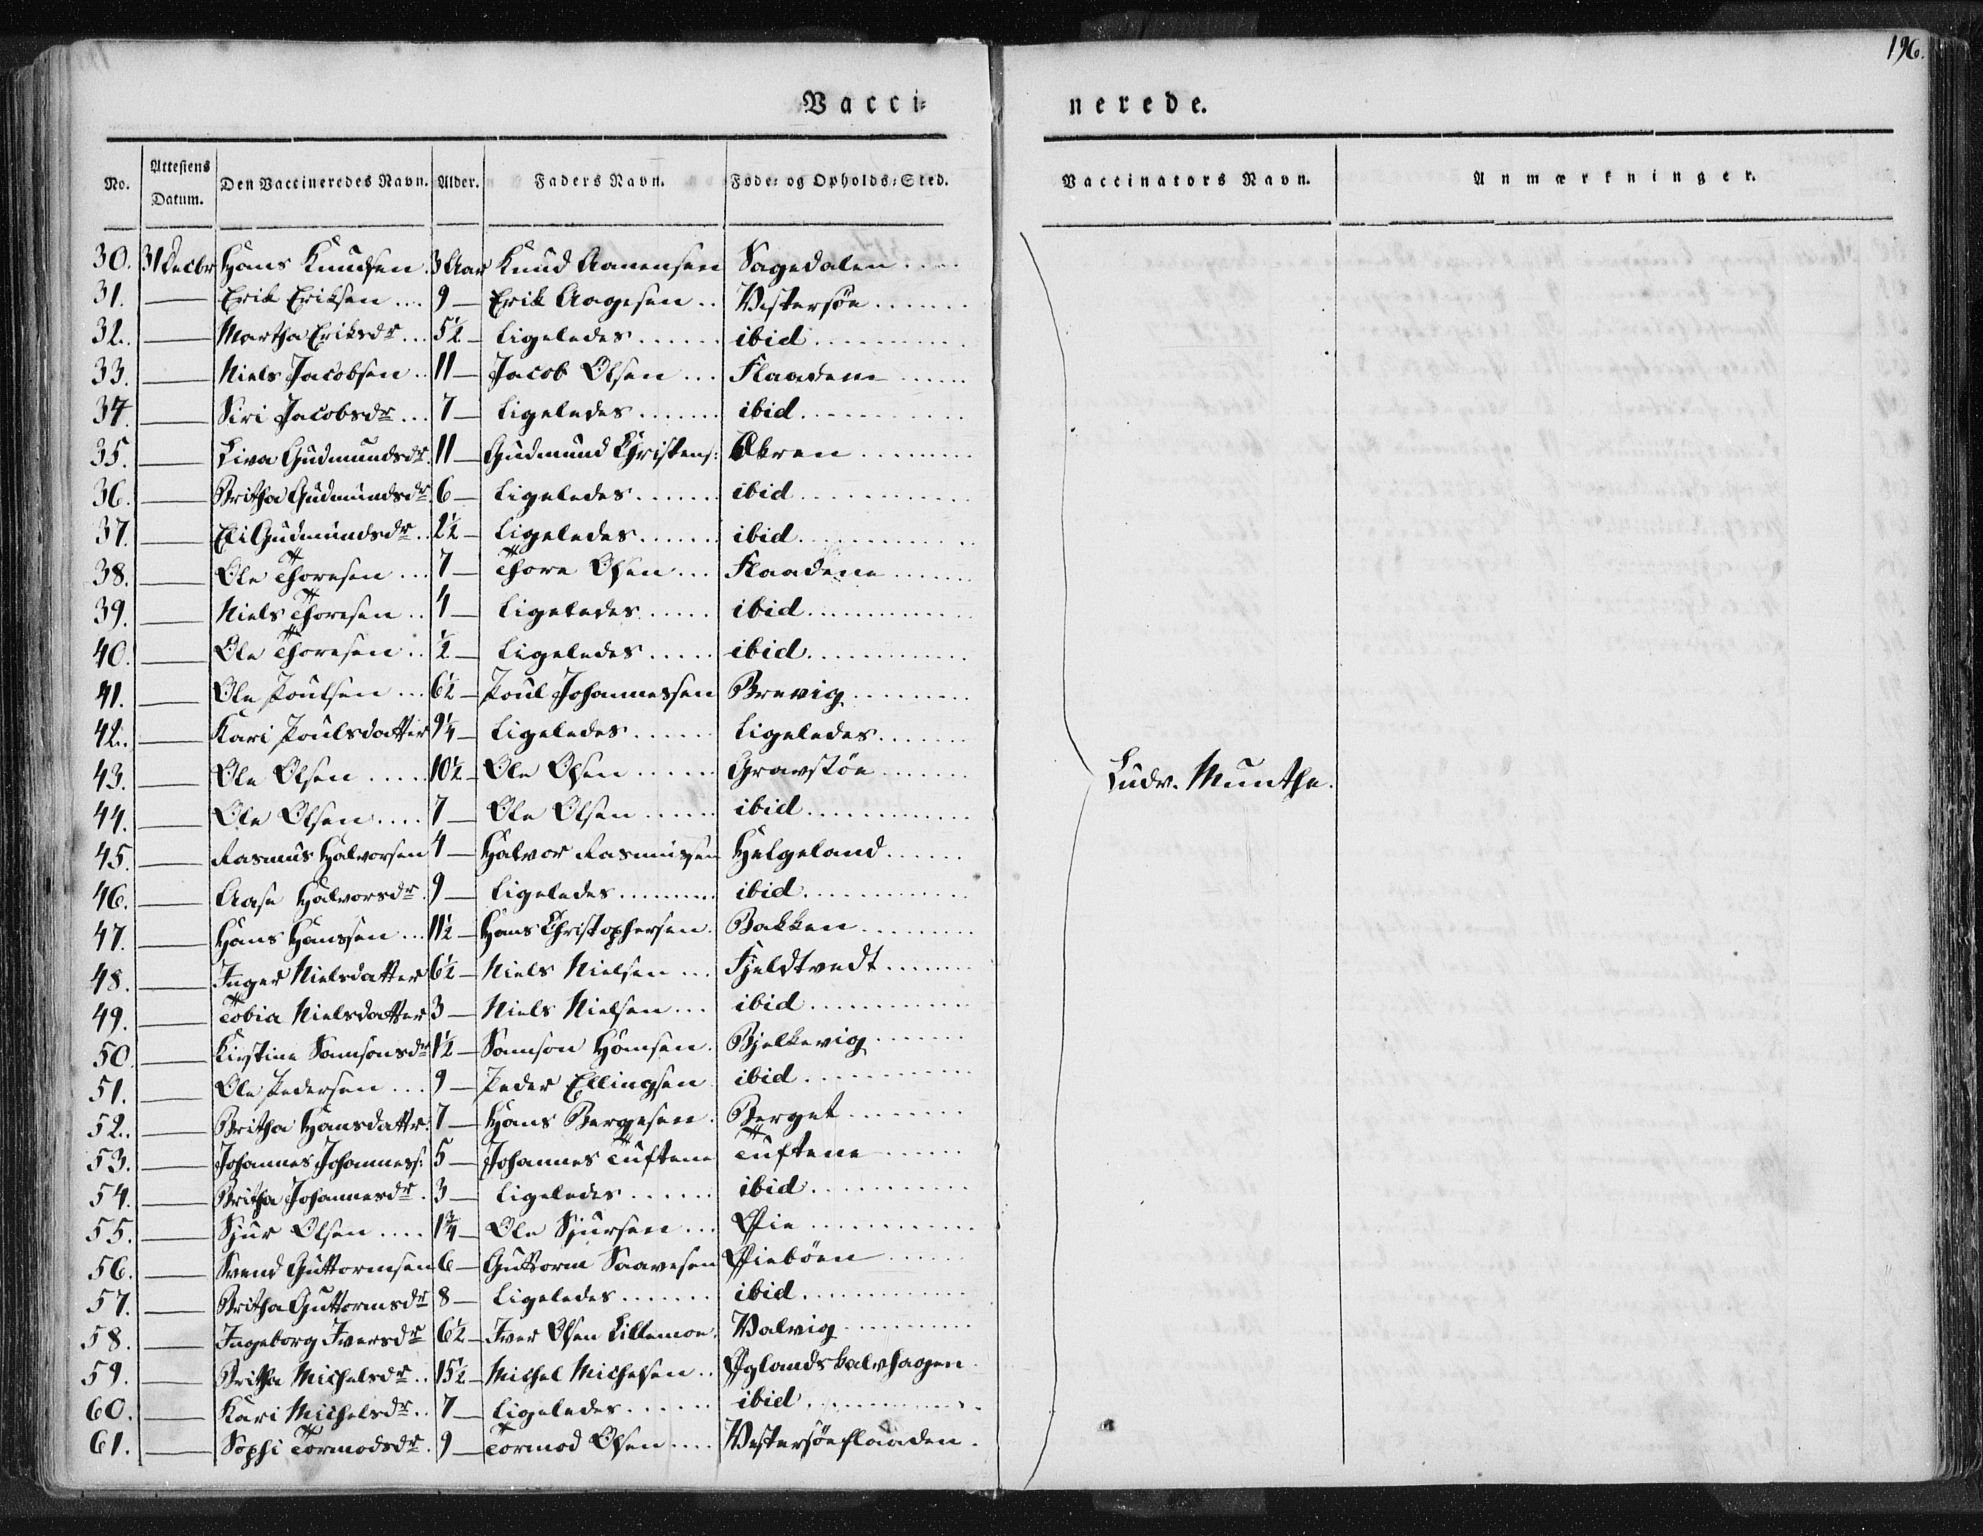 196.
Vacci= nerede.
No. Attestens Datum. Den Vaccineredes Navn. Alder. Faders Navn. Føde= og Opholds=Sted. Vaccinators Navn. Anmærkninger.
30. 31 Decbr Hans Knudsen. 3 Aar Knud Aanensen Sagedalen....
31. — Erik Eriksen... 9 — Erik Aagesen.. Vestersøe.......
32. — Martha Eriksdr... 5½ — Ligeledes...... ibid..........
33. — Niels Jacobsen.. 11 — Jacob Olsen... Flaadene......
34. — Siri Jacobsdr... 7 — Ligeledes...... ibid..........
35. — Liva Gudmundsdr. 11 — Gudmund Christens: Økren........
36. — Britha Gudmundsdr. 6 — Ligeledes...... ibid..........
37. — Eli Gudmundsdr.. 2½ — Ligeledes...... ibid..........
38. — Ole Thoresen... 7 — Thore Olsen... Flaadene......
39. — Niels Thoresen.. 4 — Ligeledes..... ibid..........
40. — Ole Thoresen.. ½ — Ligeledes..... ibid..........
41. — Ole Poulsen... 6½ — Poul Johannessen Brevig........
42. — Kari Poulsdatter 9¼ — Ligeledes..... Ligeledes......
43. — Ole Olsen..... 10½ — Ole Olsen..... Gravstöe.......
44. — Ole Olsen.... 7 — Ole Olsen..... ibid..........
45. — Rasmus Halvorsen 4 — Halvor Rasmussen Helgeland......
46. — Aase Halvorsdr. 9 — Ligeledes........ ibid..........
47. — Hans Hanssen... 11½ — Hans Christophersen. Bakken........
48. — Inger Nielsdatter 6½ — Niels Nielsen... Fjeldtvedt......
49. — Tobia Nielsdatter 3 — Niels Nielsen... ibid..........
50. — Kirstine Samsonsdr 1½ — Samson Hansen. Bjelkevig......
51. — Ole Pedersen... 9 — Peder Ellingsen ibid..........
52. — Britha Hansdattr: 7 — Hans Bergesen. Berget.......
53. — Johannes Johanness: 5 — Johannes Tuftene Tuftene......
54. — Britha Johannesdr. 3 — Ligeledes...... ibid..........
55. — Sjur Olsen.... 1¾ — Ole Sjursen... Øie..........
56. — Svend Guttormsen 6 — Guttorm Saavesen Øieböen......
57. — Britha Guttormsdr 8 — Ligeledes....... ibid..........
58. — Ingeborg Iversdr 6½ — Iver Olsen Lillemoe. Valvig........
59. — Britha Michelsdr.. 15½ — Michel Michelsen.. Øglandskalvhagen.
60. — Kari Michelsdr.. 7 — Ligeledes...... ibid..........
61. — Sophi Tormodsdr. 9 — Tormod Olsen.... Vestersøeflaaden.
Ludv. Munthe.